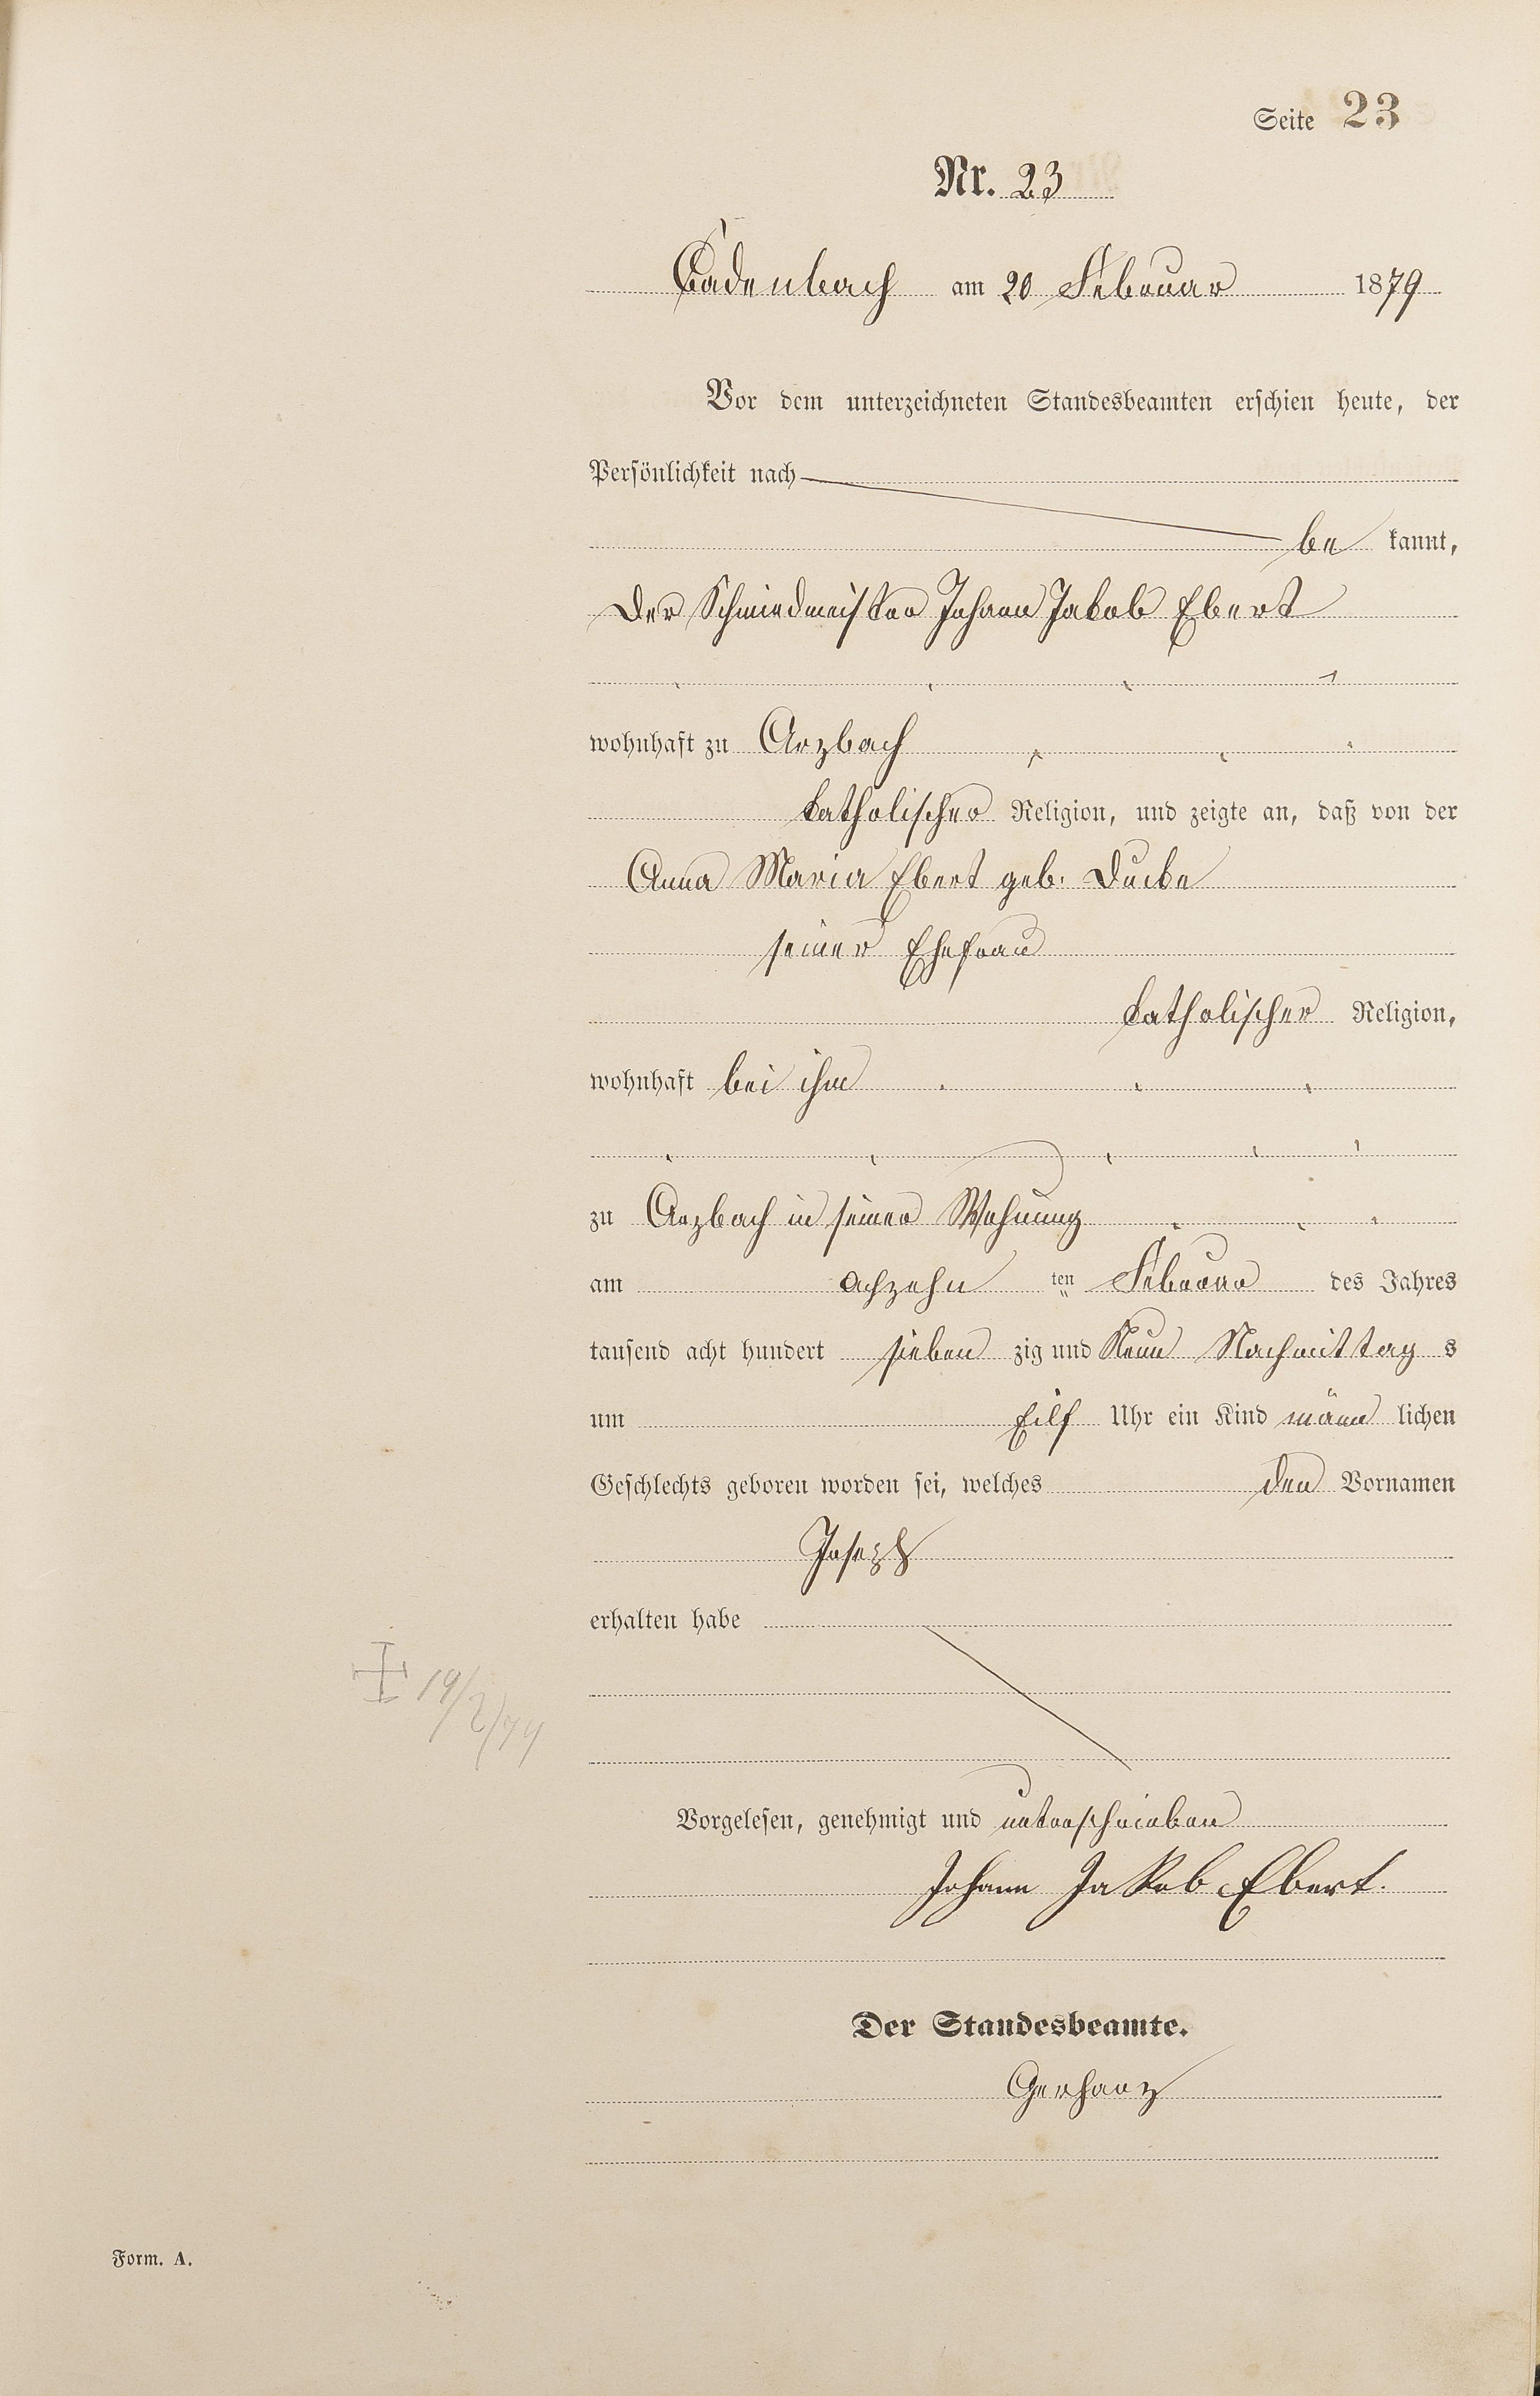 Seite 23
Nr. 23
Cadenbach am 20 Februar 1879
Vor dem unterzeichneten Standesbeamten erschien heute, der
Persönlichkeit nach
be kannt,
Der Schmiedmeister Johann Jakob Ebert
wohnhaft zu Arzbach
katholischer Religion, und zeigte an, daß von der
Anna Maria Ebert geb. Ducke
seiner Ehefrau
katholischer Religion,
wohnhaft bei ihm
zu Arzbach in seiner Wohnung
am achzehn ten Februar des Jahres
tausend acht hundert sieben zig und Neun Nachmittag s
um Eilf Uhr ein Kind männ lichen
Geschlechts geboren worden sei, welches den Vornamen
Joseph
erhalten habe
19/2/79
Vorgelesen, genehmigt und unterschrieben
Johann Jakob Ebert.
Der Standesbeamte.
Gerharz
Form. A.